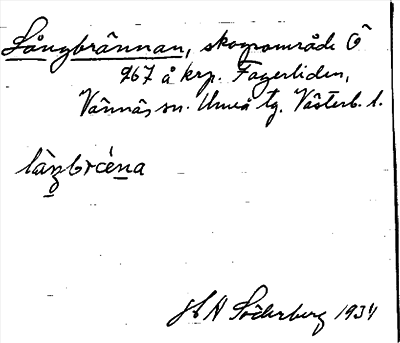 Långbrännan, skogsområde Ö
967 å krp. Fagerliden,
Vännäs sn. Umeå tg. Västerb. l.
H Söderberg 1934